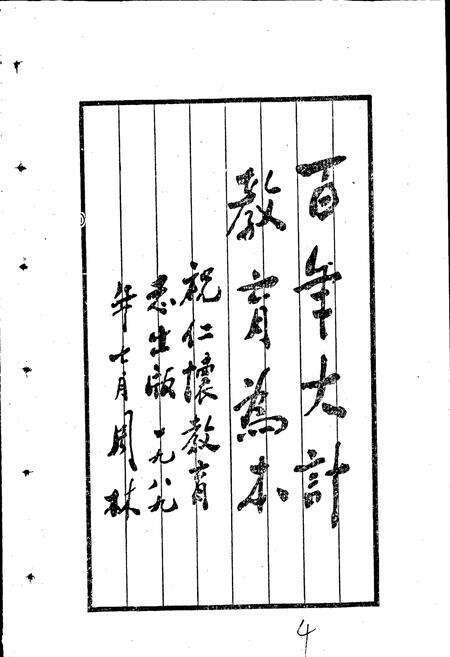 百年大计
教育為本
祝仁懷教育
志出版 一九八九
年七月周林
4